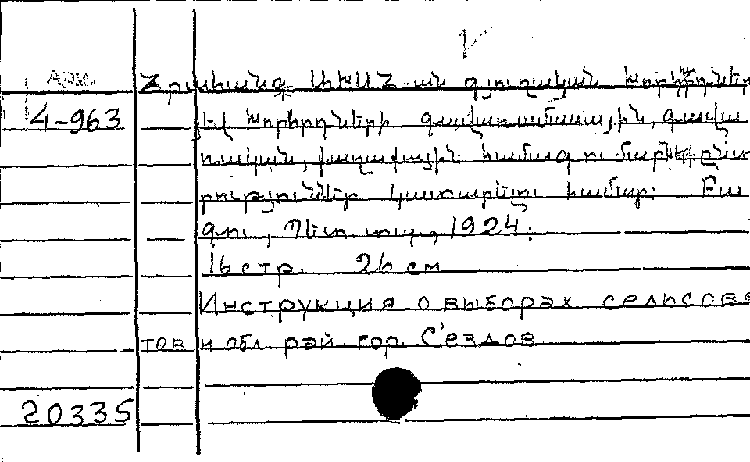 Арм.
4-963
Հրահանգ ԱԽՍՀ-ան գյուղական խորհրդներ
եվ խորհրդների գավառամասային, գավա
ռական, քաղաքային համագումարների ընտ
րություններ կատարելու համար։ Բա
գու, Պետ. տպ., 1924.
16 стр. 26 см
Инструкция о выборах сельсове
тов и обл. рай. гор. С'ездов
20335